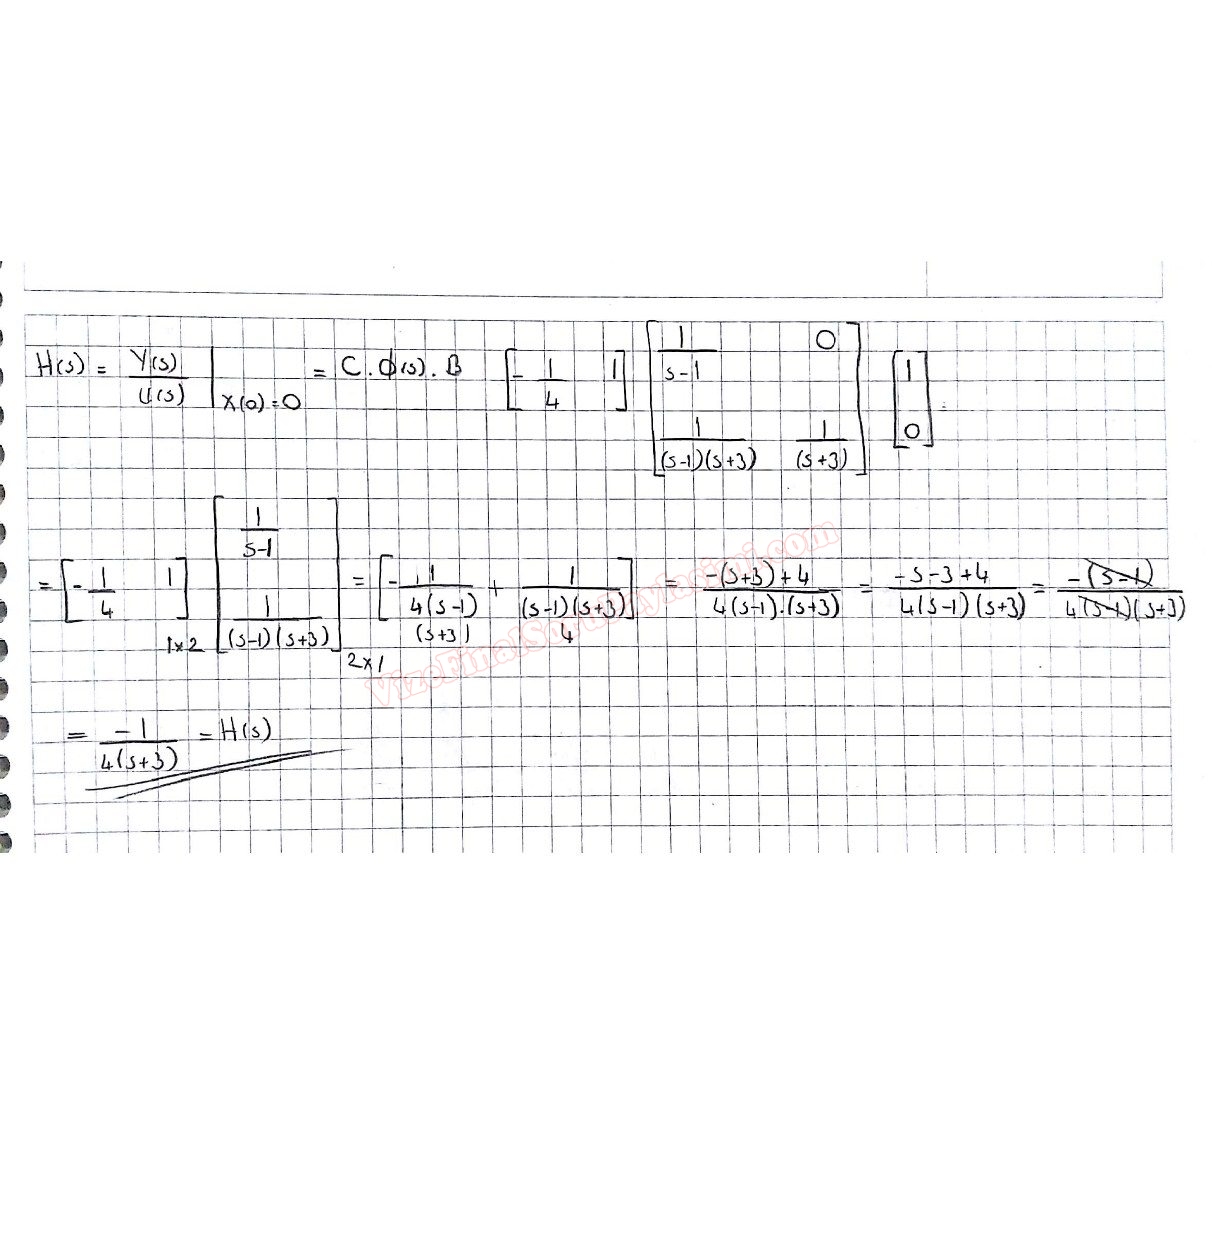 H(s) = Y(s)/U(s) | x(0)=0 = C.Φ(s).B [-1/4 1] [1/(s-1) 0; 1/((s-1)(s+3)) 1/(s+3)] [1; 0]
= [-1/4 1]1x2 [1/(s-1); 1/((s-1)(s+3))]2x1 = [-1/(4(s-1)) (s+3) + 1/((s-1)(s+3)) 4] = (-(s+3)+4)/(4(s-1).(s+3)) = (-s-3+4)/(4(s-1)(s+3)) = -(s-1)/(4(s-1)(s+3))
= -1/(4(s+3)) = H(s)
VizeFinalSoruPaylasimi.com